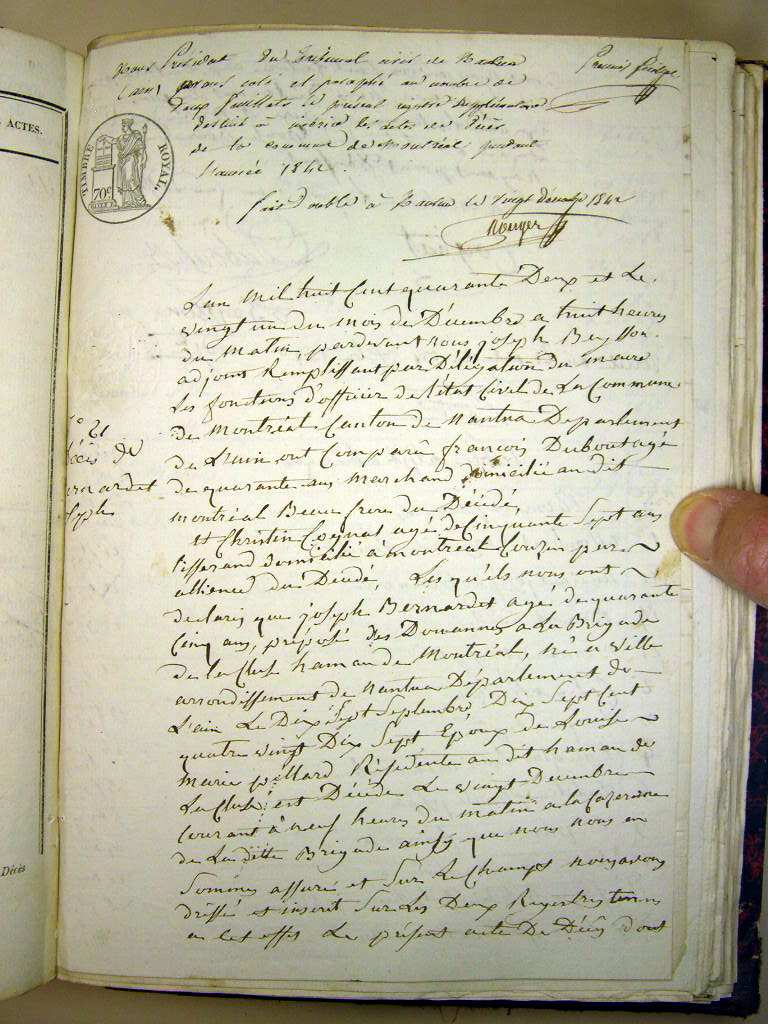 ACTES.
Nous Président du Tribunal civil de Nantua
Premier feuillet
(ain) avons coté et paraphé au nombre de
deux feuillets le présent registre supplémentaire
destiné à inscrire les actes de décès
de la commune de Montréal pendant
l'année 1842.
TIMBRE ROYAL
70c
fait double à Nantua le vingt décembre 1842
Rouyer
L'an mil huit Cent quarante Deux et Le
vingt un du mois de Décembre a huit heures
du matin, pardevant nous joseph Beysson
adjoint Remplissant par Délégation du maire
Les fonctions d'officier de l'état Civil de La Commune
de Montréal Canton de Nantua Departement
de L'ain ont Comparû françois Dubout agé
de quarante ans marchand domicilié au dit
montréal Beau frere du Décédé,
et Christin Cognat agé de Cinquante Sept ans
tisserand domicilié à montreal Couzin par
allience du Décédé, Les qu'els nous ont
declarés que joseph Bernardet agé de quarante
Cinq ans, préposé des Douannes a La Brigade
de la Cluse hamau de Montréal, né a ville
arrondissement de nantua Département de
L'ain Le Dix Sept Septembre Dix Sept Cent
quatre vingt Dix Sept Epoux de Louise
marie pillard Résidente au dit hamau de
La Cluse est Décédé Le vingt Decembre
Courant à neuf heures du matin a la Cazerne
de La ditte Brigade ainsy que nous nous en
Sommes assuré et Sur Le Champs nous avons
dressé et inscrit Sur Les Deux Registres tenus
a cet effet Le présent acte De Décès dont
N° 21
décès de
Bernardet
joseph
Décès